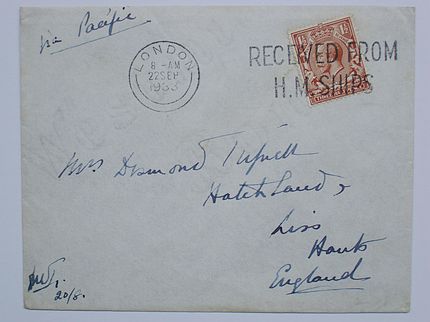 via Pacific
LONDON
8 - AM
22 SEP
1933
RECEIVED FROM
H.M. SHIPS
Mrs Desmond Tufnell
Hatchlands
Liss
Hants
England
20/8.